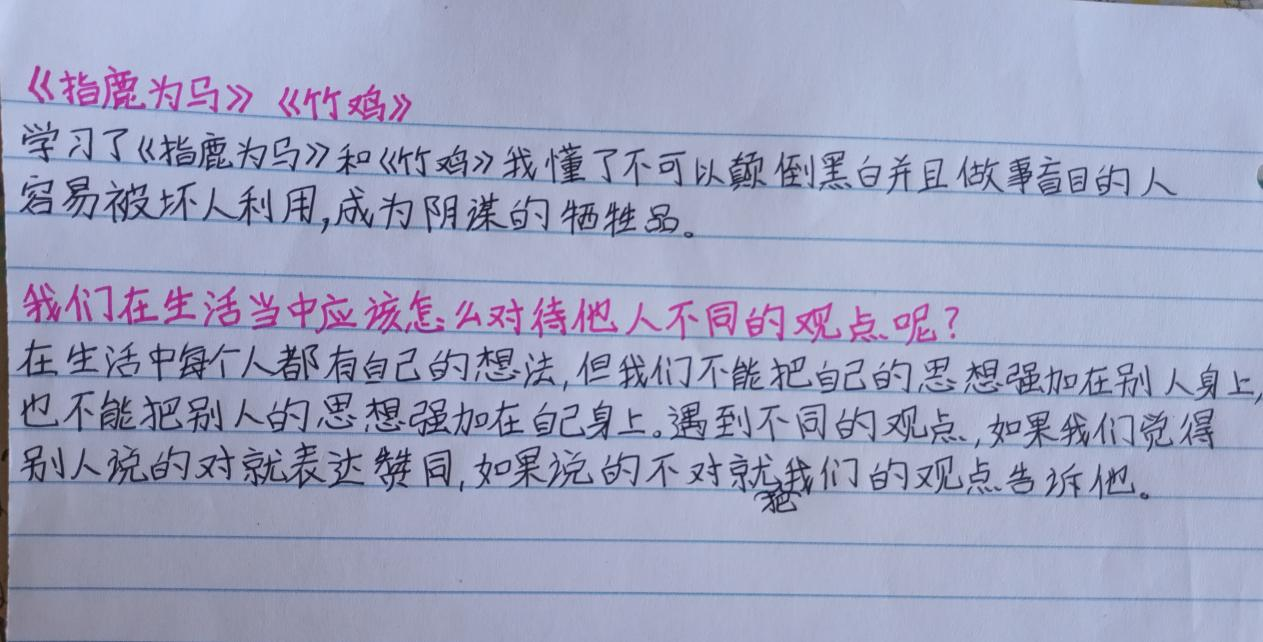 《指鹿为马》《竹鸡》
学习了《指鹿为马》和《竹鸡》我懂了不可以颠倒黑白并且做事盲目的人
容易被坏人利用,成为阴谋的牺牲品。
我们在生活当中应该怎么对待他人不同的观点呢?
在生活中每个人都有自己的想法,但我们不能把自己的思想强加在别人身上,
也不能把别人的思想强加在自己身上。遇到不同的观点,如果我们觉得
别人说的对就表达赞同,如果说的不对就把我们的观点告诉他。